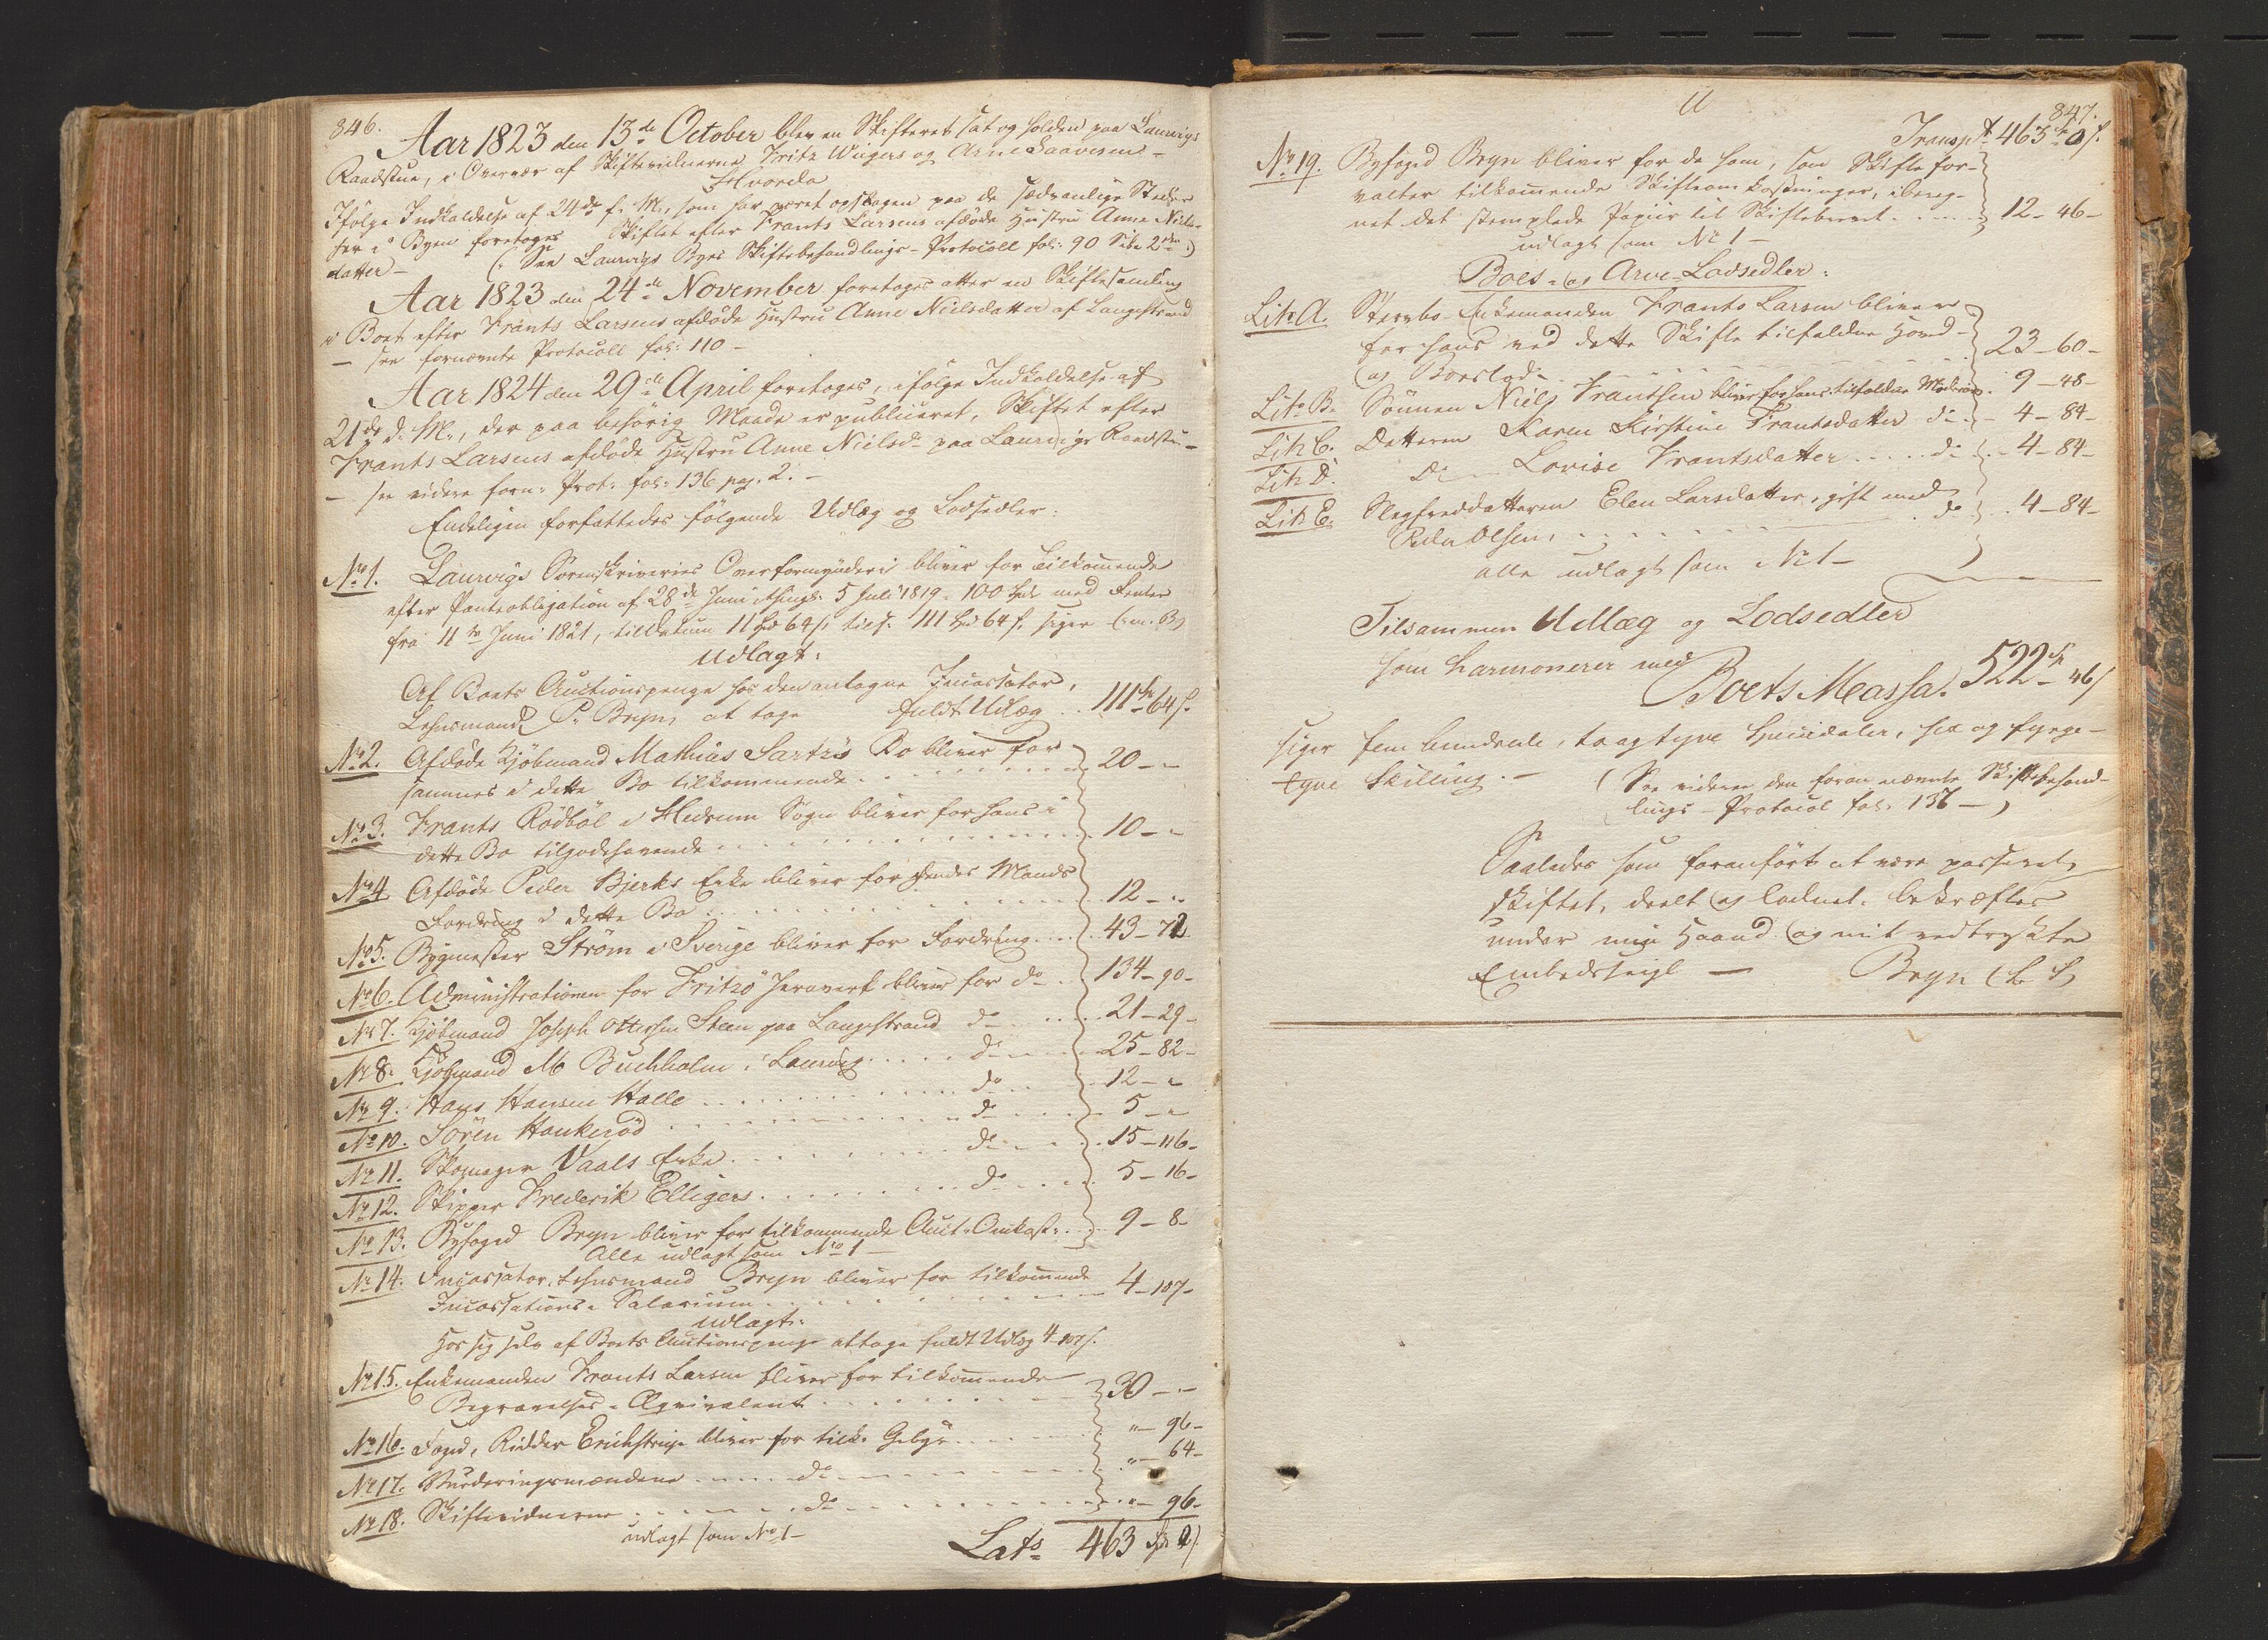 846.
Aar 1823 den 13de October blev en Skifteret sat og holden paa Laurvigs
Raadstue, i Overvær af Skiftevidnerne Fritz Wiigers og Arne Laavesens
Hvorda
Ifölge Indkaldelse af 24de f: M:, som har været opslagen paa de sædvanlige Steder
her i Byen foretoges Skiftet efter Frants Larsens afdöde Hustru Anne Niels-
datter – (: See Laurvigs Byes Skiftebehandlings-Protocoll fol: 90 Side 2den :)
Aar 1823 den 24de November foretoges atter en Skiftesamling
i Boet efter Frants Larsens afdöde Hustru Anne Nielsdatter af Langestrand
– see fornævnte Protocoll fol: 110 –
Aar 1824 den 29de April foretoges, ifölge Indkaldelse af
21de d: M:, der paa behörig Maade er publiceret, Skiftet efter
Frants Larsens afdöde Hustru Anne Nielsd: paa Laurvigs Raadstue –
– see videre forn: Prot: fol: 136 pag. 2. –
Endeligen forfattedes fölgende Udlæg og Lodsedler:
No 1. Laurvigs Sorenskriveries Overformynderi bliver for Tilkommende
efter Panteobligation af 28de Juni thingl: 5 Juli 1819 – 100 Spd med Renter
fra 11te Juni 1821, til Datum 11 Spd 64 s. tils: 111 Spd 64 s. siger
Udlagt:
Af Boets Auctionspenge hos den antagne Incassator,
Lehnsmand P. Bryn, at tage fuldt Udlæg .. 111 – 64 s.
No 2. Afdöde Kjöbmand Mathias Sartzis Bo bliver for
sammes i dette Bo tilkommende ..... 20 – "
No 3. Frants Rödböl i Hedrum Sogn bliver for hans i
dette Bo tilgodehavende ..... 10 – "
No 4. Afdöde Peder Bjerks Enke bliver for hendes Mands
Fordring i dette Bo ..... 12 – "
No 5. Bygmester Ström i Sverige bliver for Fordring ... 43 – 72
No 6. Administrationen for Fritzö Jernverk bliver for do .. 134 – 90 –
No 7. Kjöbmand Joseph Ottersen Steen paa Langestrand do .. 21 – 29 –
No 8. Kjöbmand M Buchholm i Laurvig .... do ... 25 – 82 –
No 9. Hans Hansen Halle ..... do .. 12 – "
No 10. Sören Haukeröd ..... do ... 5 – "
No 11. Skomager Vaals Enke ..... do ... 15 – 116 –
No 12. Skipper Frederik Elligers ..... do ... 5 – 16 –
No 13. Byfoged Bryn bliver for tilkommende Auct: Omkost: ... 9 – 8 –
Alle udlagt som No 1 –
No 14. Incassator, Lehnsmand Bryn bliver for tilkommende
Incassations-Salarium ..... 4 – 107 –
udlagt:
Hos sig selv af Boets Auctionspenge at tage fuldt Udlæg 4 – 107 s.
No 15. Enkemanden Frants Larsen bliver for tilkommende
Begravelses-Æqvivalent ..... 30 – "
No 16. Foged, Ridder Erichstrup bliver for tilk: Gebyr ..... " – 96 –
No 17. Vurderingsmændene ..... do ..... " – 64 –
No 18. Skiftevidnerne ..... do ..... " – 96 –
udlagt som No 1 –
Lats 463 Spd 0 s.
847.
Transpt 463 – 0 s.
No 19. Byfoged Bryn bliver for de ham, som Skiftefor-
valter tilkommende Skifteomkostninger, ibereg-
net det stemplede Papiir til Skiftebrevet ..... 12 – 46 –
udlagt som No 1 –
Boes- og Arve-Lodsedler:
Litr A. Stervbo-Enkemanden Frants Larsen bliver
for hans ved dette Skifte tilfaldne Hoved-
og Boeslod: ..... 23 – 60 –
Litr B. Sönnen Niels Frantsen bliver for hans tilfaldne Mödrene . 9 – 48 –
Litr C. Datteren Karen Kirstine Frantsdatter do .. 4 – 84 –
Litr D. Do – Lovise Frantsdatter ..... do .. 4 – 84 –
Litr E. Slegfreddatteren Elen Larsdatter, gift med
Peder Olsen, ..... do .. 4 – 84 –
alle udlagt som No 1 –
Tilsammen Udlæg og Lodsedler
som harmonerer med
Boets Massa. 522 – 46 s
siger fem hundrede, to og tyve Speciedaler, sex og fyrge-
tyve Skilling. – ( See videre den foran nævnte Skiftebehand-
lings-Protocol fol: 136 – )
Saaledes som foranfört at være passeret,
skiftet, deelt og lodnet, bekræftes
under min Haand og mit vedtrykte
Embedsseigl – Bryn (L. S.)